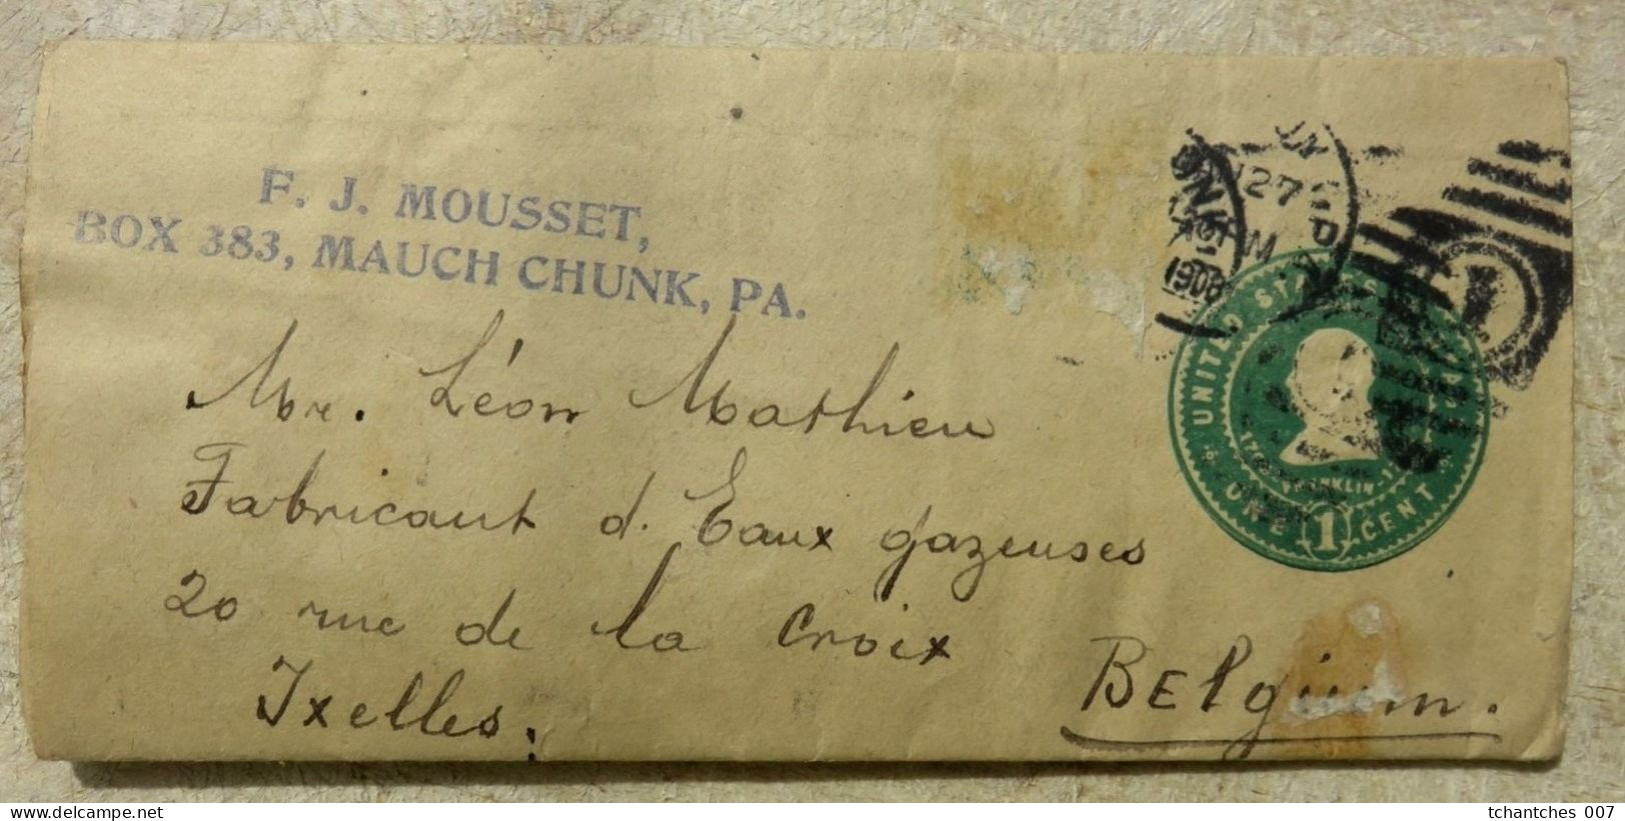 F. J. MOUSSET,
BOX 383, MAUCH CHUNK, PA.
27
1908
UNITED STATES
FRANKLIN
ONE 1 CENT
1
Mr. Léon Mathieu
Fabricant d. Eaux gazeuses
20 rue de la Croix
Ixelles.
BElgium.
tchantches 007